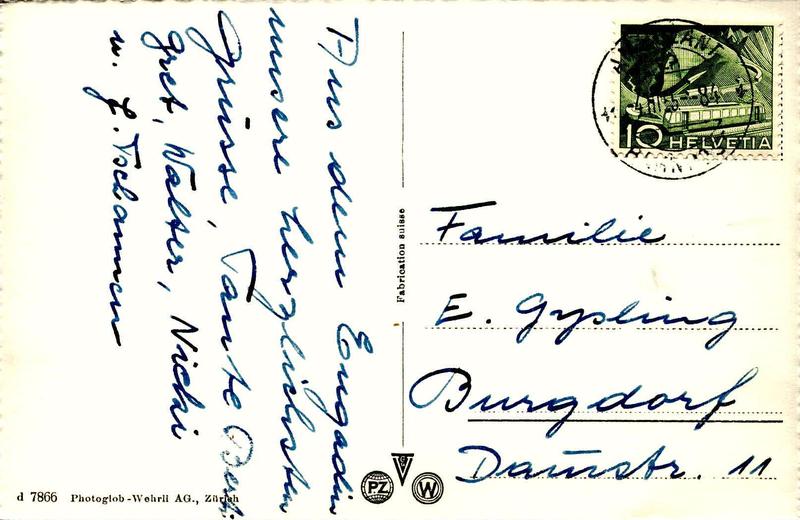 Aus dem Engadin
unsere herzlichsten
Grüsse, Tante Berti
Gret, Walter, Nicki
u. F. Tschannen
Fabrication suisse
10 HELVETIA
Familie
E. Gysling
Burgdorf
Damstr. 11
PZ
W
d 7866 Photoglob-Wehrli AG., Zürich